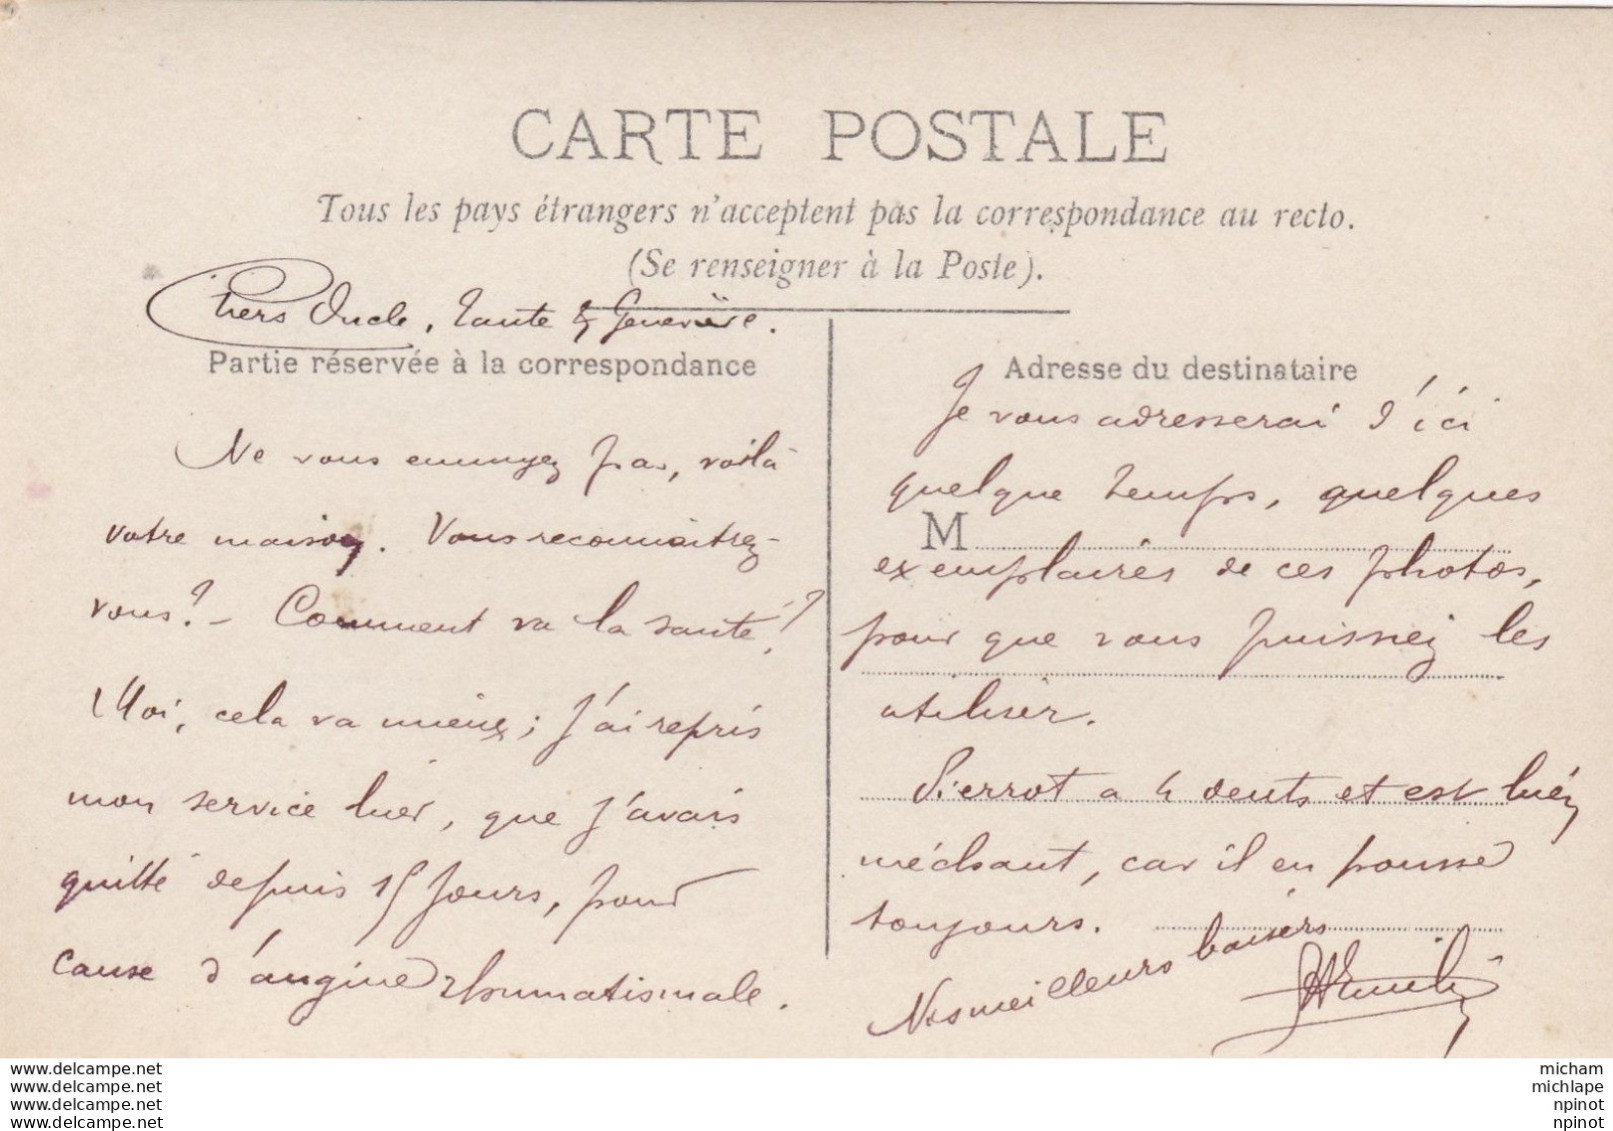 CARTE POSTALE
Tous les pays étrangers n'acceptent pas la correspondance au recto.
(Se renseigner à la Poste).
Chers Oncle, Tante & Geneviève.
Partie réservée à la correspondance
Ne vous ennuyez pas, voilà
votre maison. Vous reconnaitrez-
vous? - Comment va la santé?
Moi, cela va mieux; j'ai repris
mon service hier, que j'avais
quitté depuis 15 jours, pour
cause d'angine rhumatismale.
Adresse du destinataire
Je vous adresserai d'ici
quelque temps, quelques
M
exemplaires de ces photos,
pour que vous puissiez les
utiliser.
Pierrot a 4 dents et est bien
méchant, car il en pousse
toujours.
Nos meilleurs baisers
www.delcampe.net
www.delcampe.net
www.delcampe.net
www.delcampe.net
micham
michlape
npinot
npinot